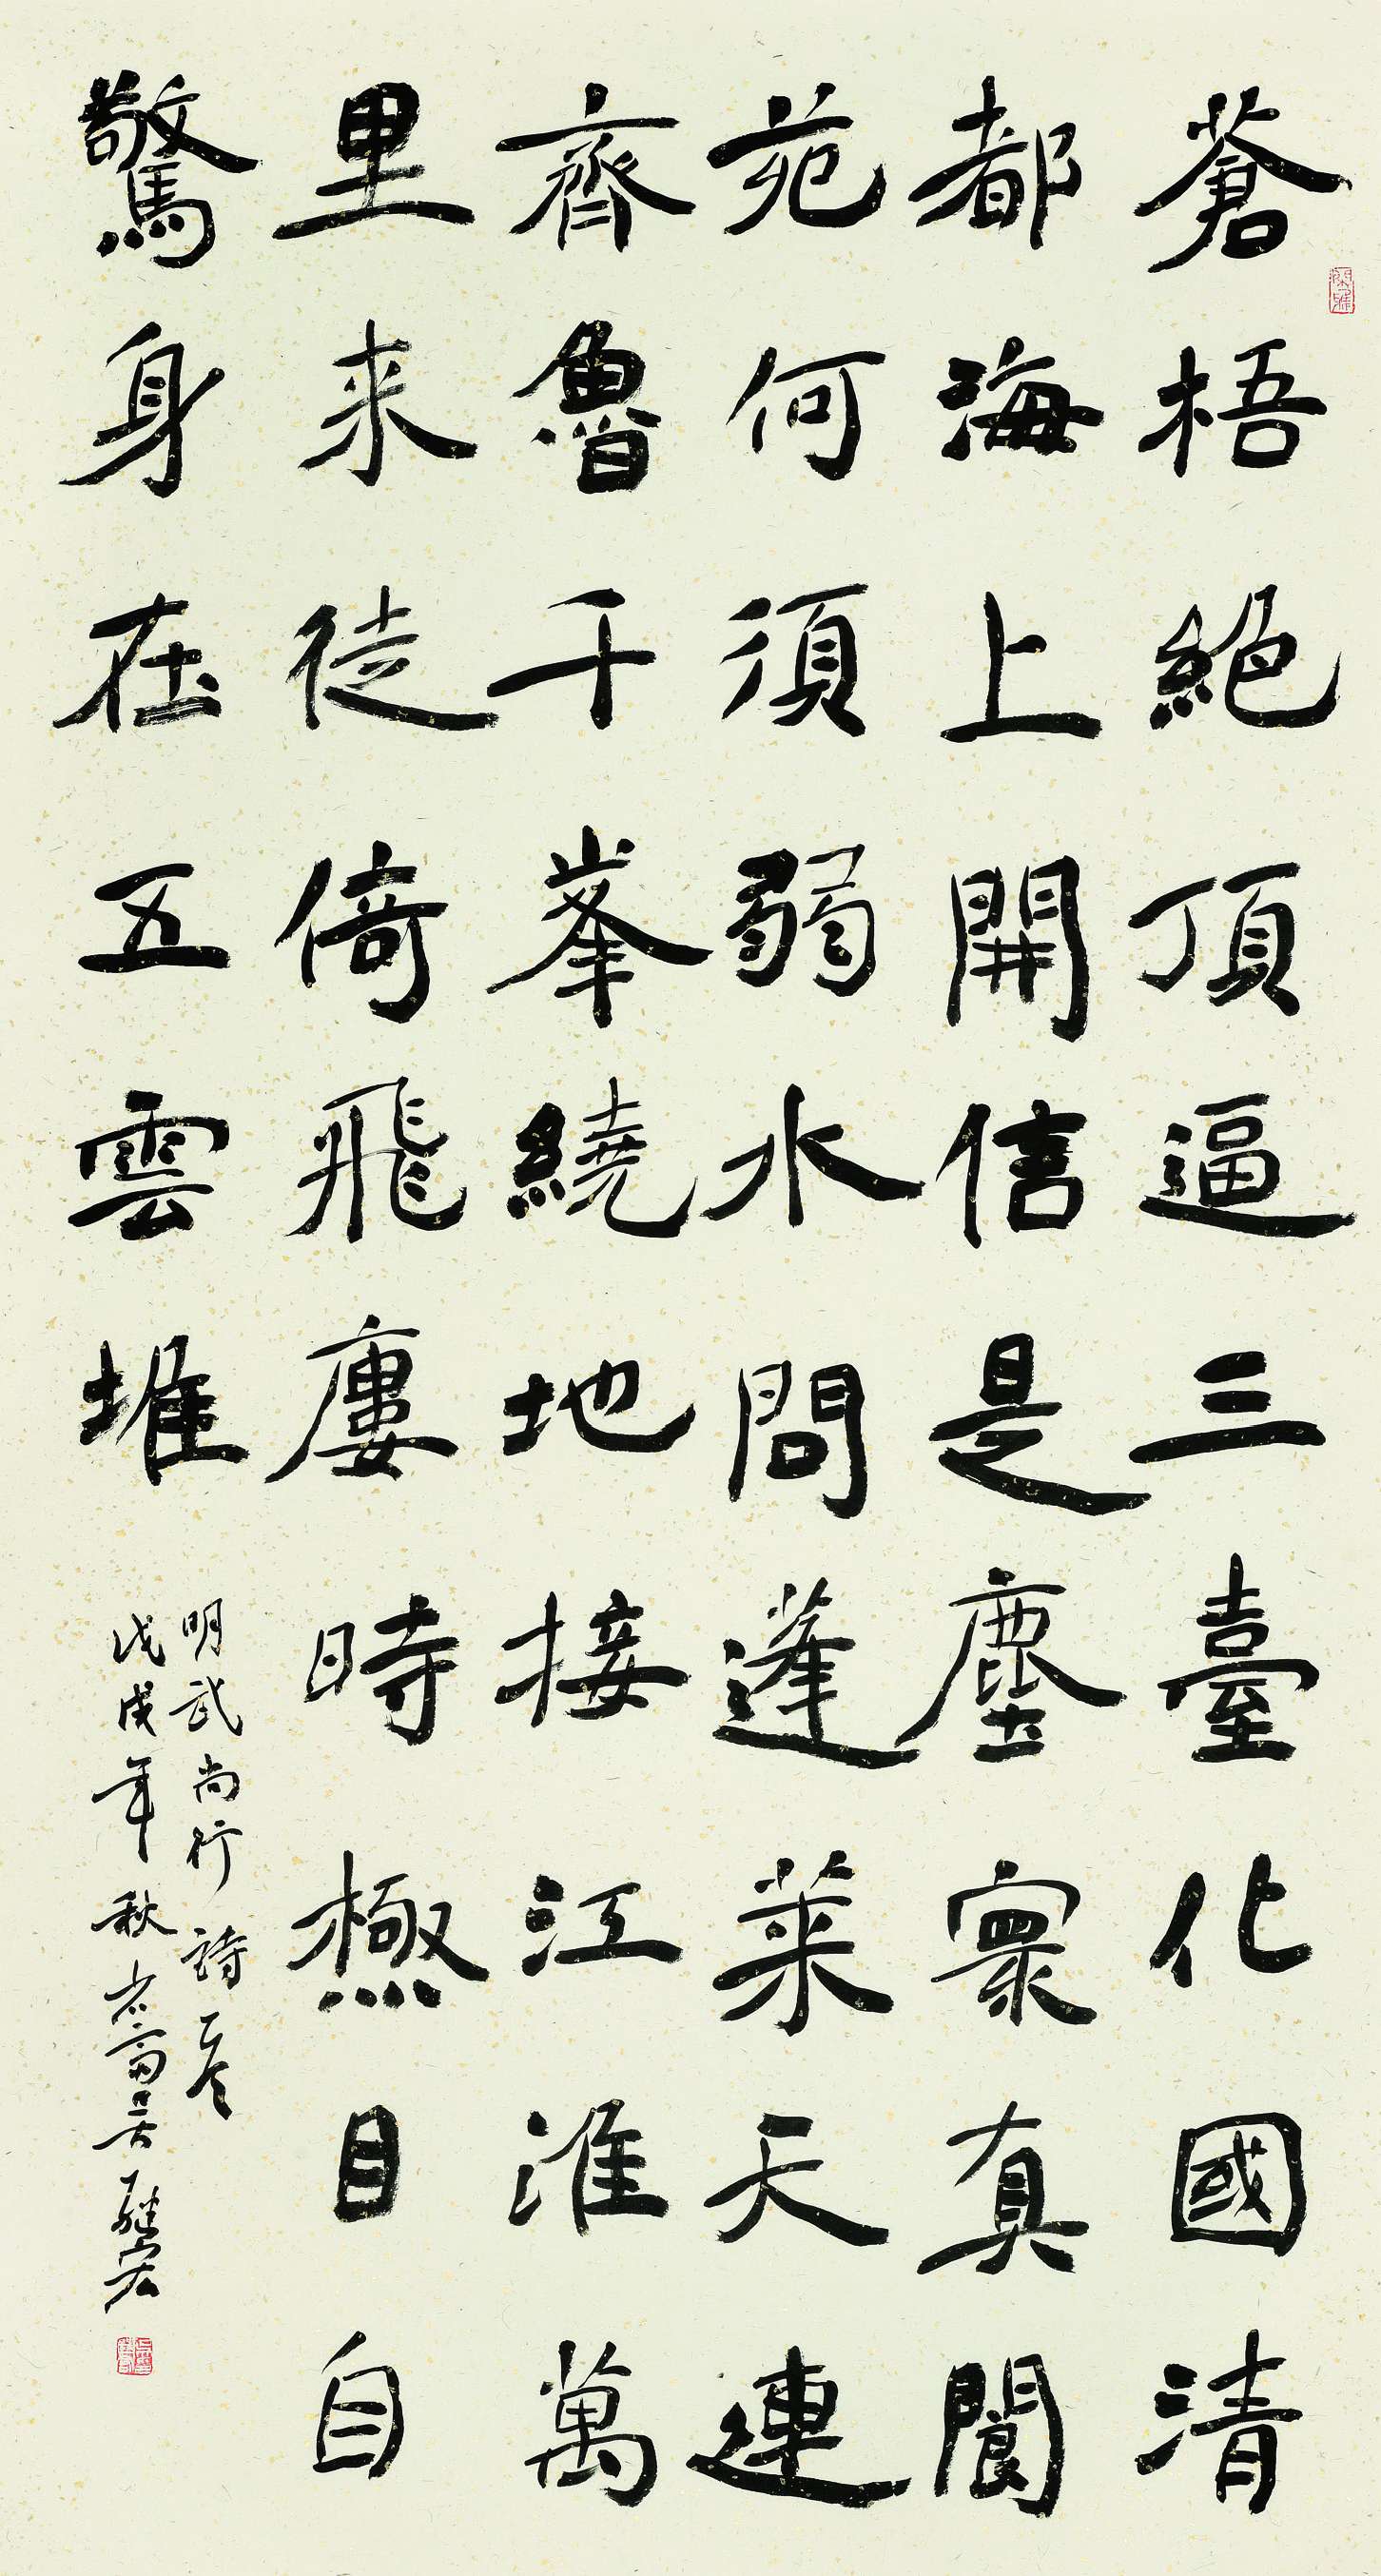 蒼梧絕頂逼三臺化國清
都海上開信是塵寰真閬
苑何須弱水問蓬萊天連
齊魯千峯繞地接江淮萬
里来徒倚飛廔時極目自
驚身在五雲堆
明武尚行詩一首
戊戌年秋